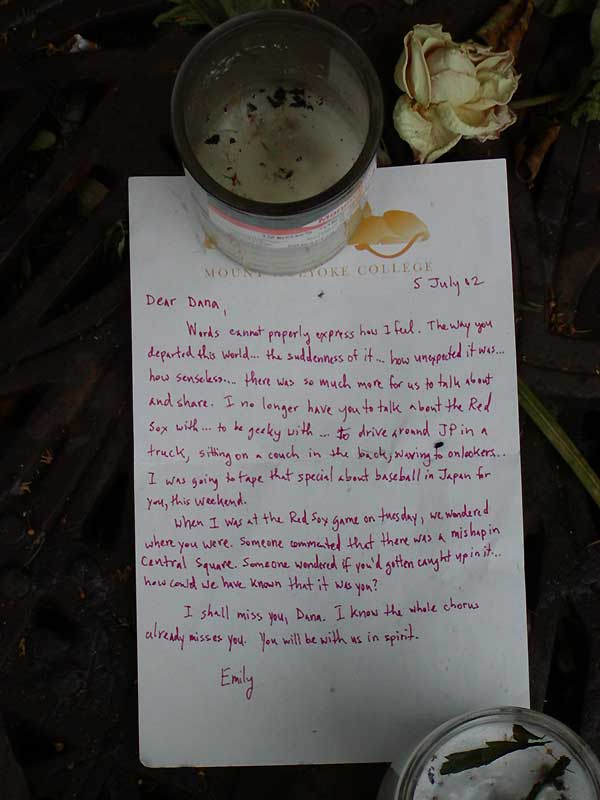 MOUNT HOLYOKE COLLEGE
5 July 02
Dear Dana,
Words cannot properly express how I feel. The way you
departed this world... the suddenness of it... how unexpected it was...
how senseless... there was so much more for us to talk about
and share. I no longer have you to talk about the Red
Sox with... to be geeky with... to drive around JP in a
truck, sitting on a couch in the back, waving to onlookers...
I was going to tape that special about baseball in Japan for
you, this weekend.
When I was at the Red Sox game on Tuesday, we wondered
where you were. Someone commented that there was a mishap in
Central Square. Someone wondered if you'd gotten caught up in it...
how could we have known that it was you?
I shall miss you, Dana. I know the whole chorus
already misses you. You will be with us in spirit.
Emily